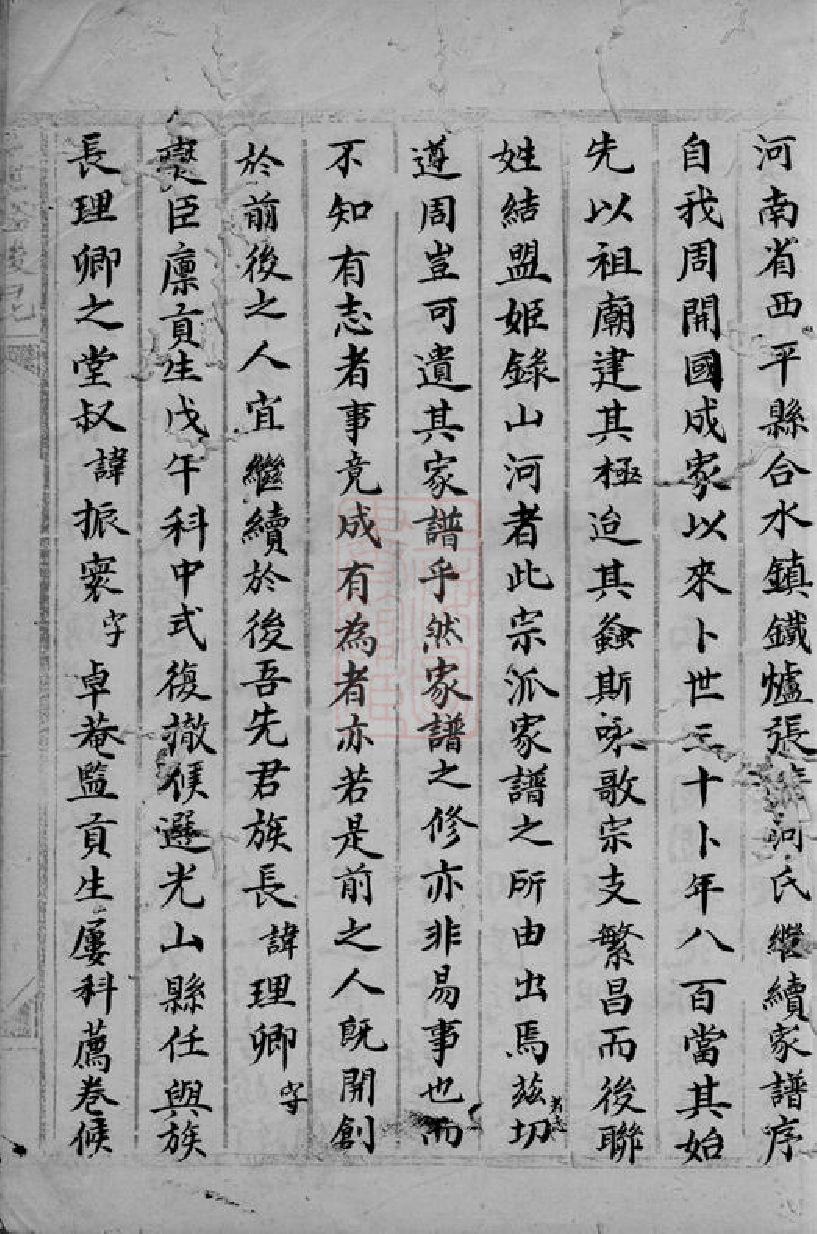 河南省西平縣合水鎮鐵爐張 氏繼續家譜序
自我周開國成家以來卜世三十卜年八百當其始
先以祖廟建其極迨其螽斯咏歌宗支繁昌而後聯
姓結盟姬錄山河者此宗派家譜之所由出焉茲切
遵周豈可遺其家譜乎然家譜之修亦非易事也而
不知有志者事竟成有為者亦若是前之人既開創
於前後之人宜繼續於後吾先君族長諱理卿字
臣廪貢生戊午科中式復撤候選光山縣任與族
長理卿之堂叔諱振寰字卓菴監貢生屢科薦卷候